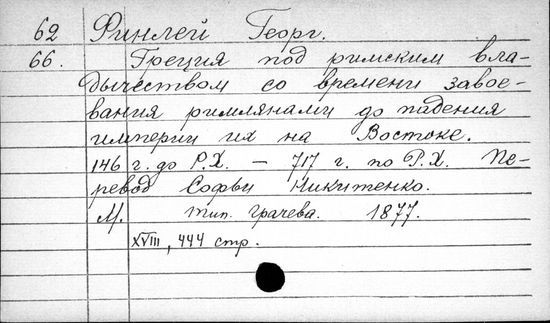 62 Финлей Георг.
66. Греция под римским вла-
дычеством со времени завое-
вания римлянами до падения
империи их на Востоке.
146 г. до Р.Х. — 717 г. по Р.Х. Пе-
ревод Софьи Никитенко.
М. тип. Грачева. 1877.
XVIII, 444 стр.